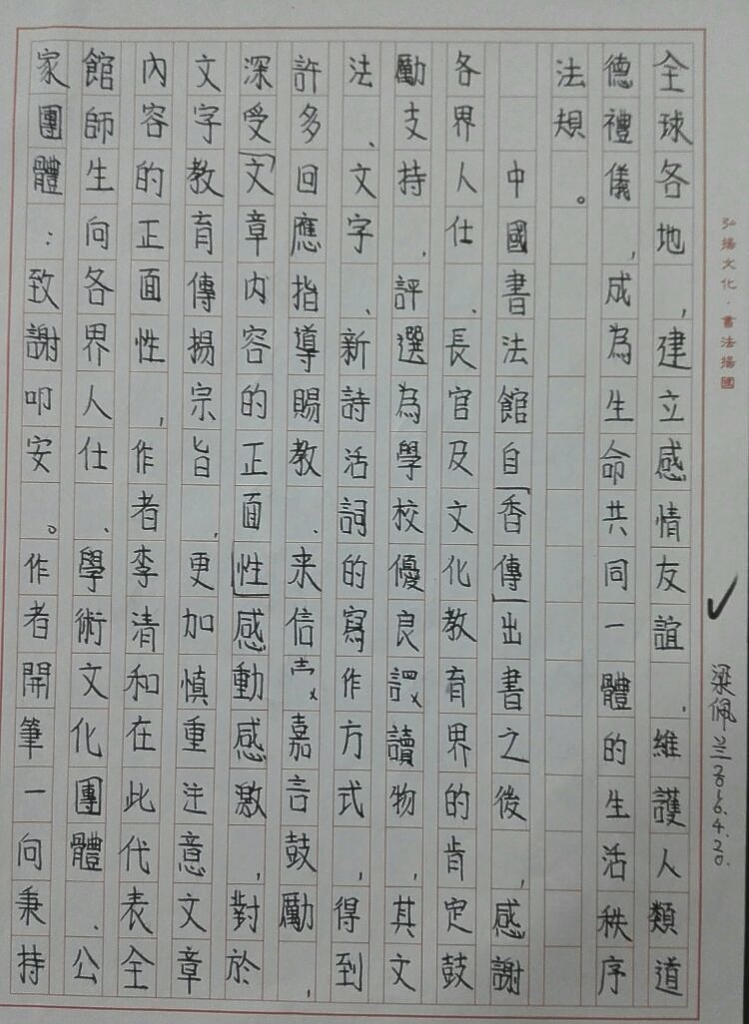 全球各地，建立感情友誼、維護人類道
德禮儀，成為生命共同一體的生活秩序
法規。
中國書法館自「香傳」出書之後，感謝
各界人仕、長官及文化教育界的肯定鼓
勵支持，評選為學校優良讀物，其文
法、文字、新詩活詞的寫作方式，得到
許多回應指導賜教、来信嘉言鼓勵，
深受「文章内容的正面性」感動感激，對於
文字教育傳揚宗旨，更加慎重注意文章
內容的正面性，作者李清和在此代表全
館師生向各界人仕、學術文化團體、公
家團體：致謝叩安。作者開筆一向秉持
弘揚文化．書法揚國
梁佩兰2016.4.20.